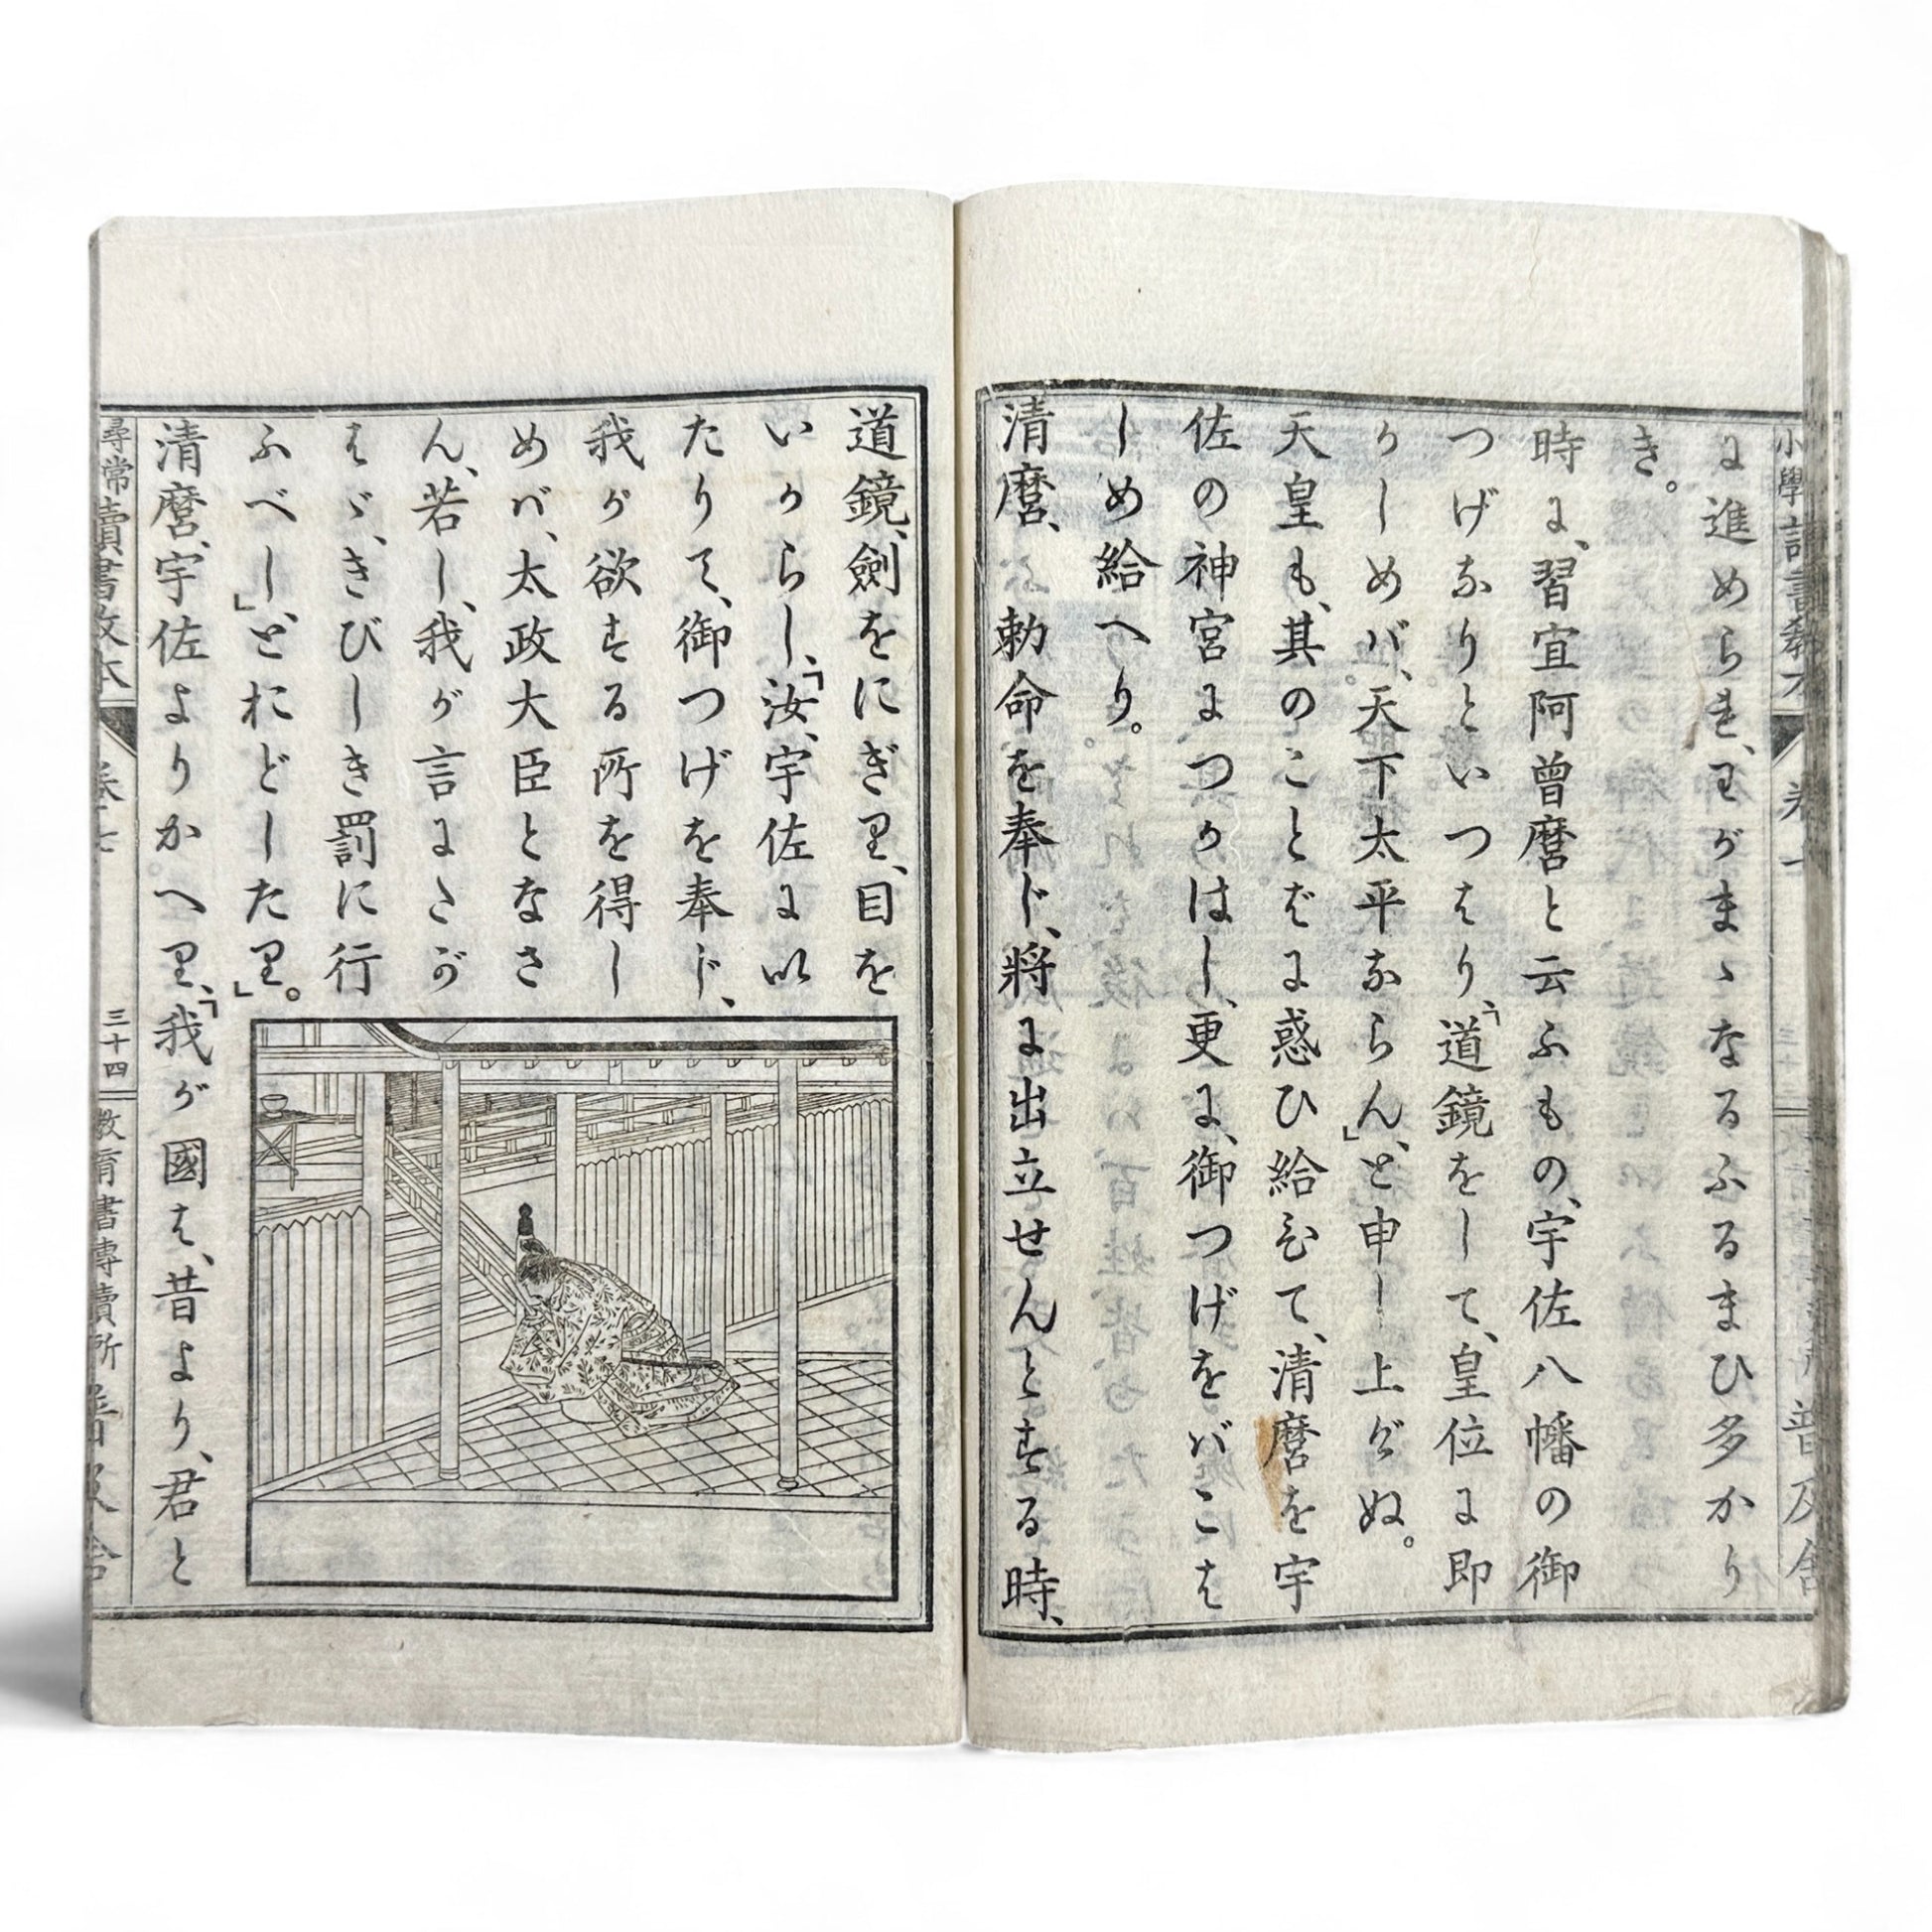 に進められ、わがまゝなるふるまひ多かり
き。
時に、習宜阿曾麿と云ふもの、宇佐八幡の御
つげなりといつはり、「道鏡をして、皇位に即
かしめバ、天下太平ならん」、と申し上げぬ。
天皇も、其のことばに惑ひ給ひて、清麿を宇
佐の神宮に、つかはし、更に、御つげをバこは
しめ給へり。
清麿、勅命を奉じ、將に出立せんとする時、
道鏡、劍をにぎり、目を
いからし、「汝、宇佐に以
たりて、御つげを奉じ、
我が欲する所を得し
めバ、太政大臣となさ
ん、若し、我が言にたが
はゞ、きびしき罰に行
ふべし」、とおどしたり」。
清麿、宇佐よりかへり、「我が國は、昔より、君と
尋常讀書教本
卷七
三十四
教育書專賣所
普及舍